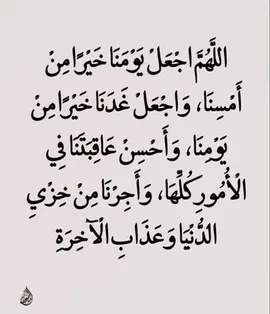 اللَّهُمَّ اجْعَلْ يَوْمَنَا خَيْرًا مِنْ
أَمْسِنَا، وَاجْعَلْ غَدَنَا خَيْرًا مِنْ
يَوْمِنَا، وَأَحْسِنْ عَاقِبَتَنَا فِي
الْأُمُورِ كُلِّهَا، وَأَجِرْنَا مِنْ خِزْيِ
الدُّنْيَا وَعَذَابِ الْآخِرَةِ